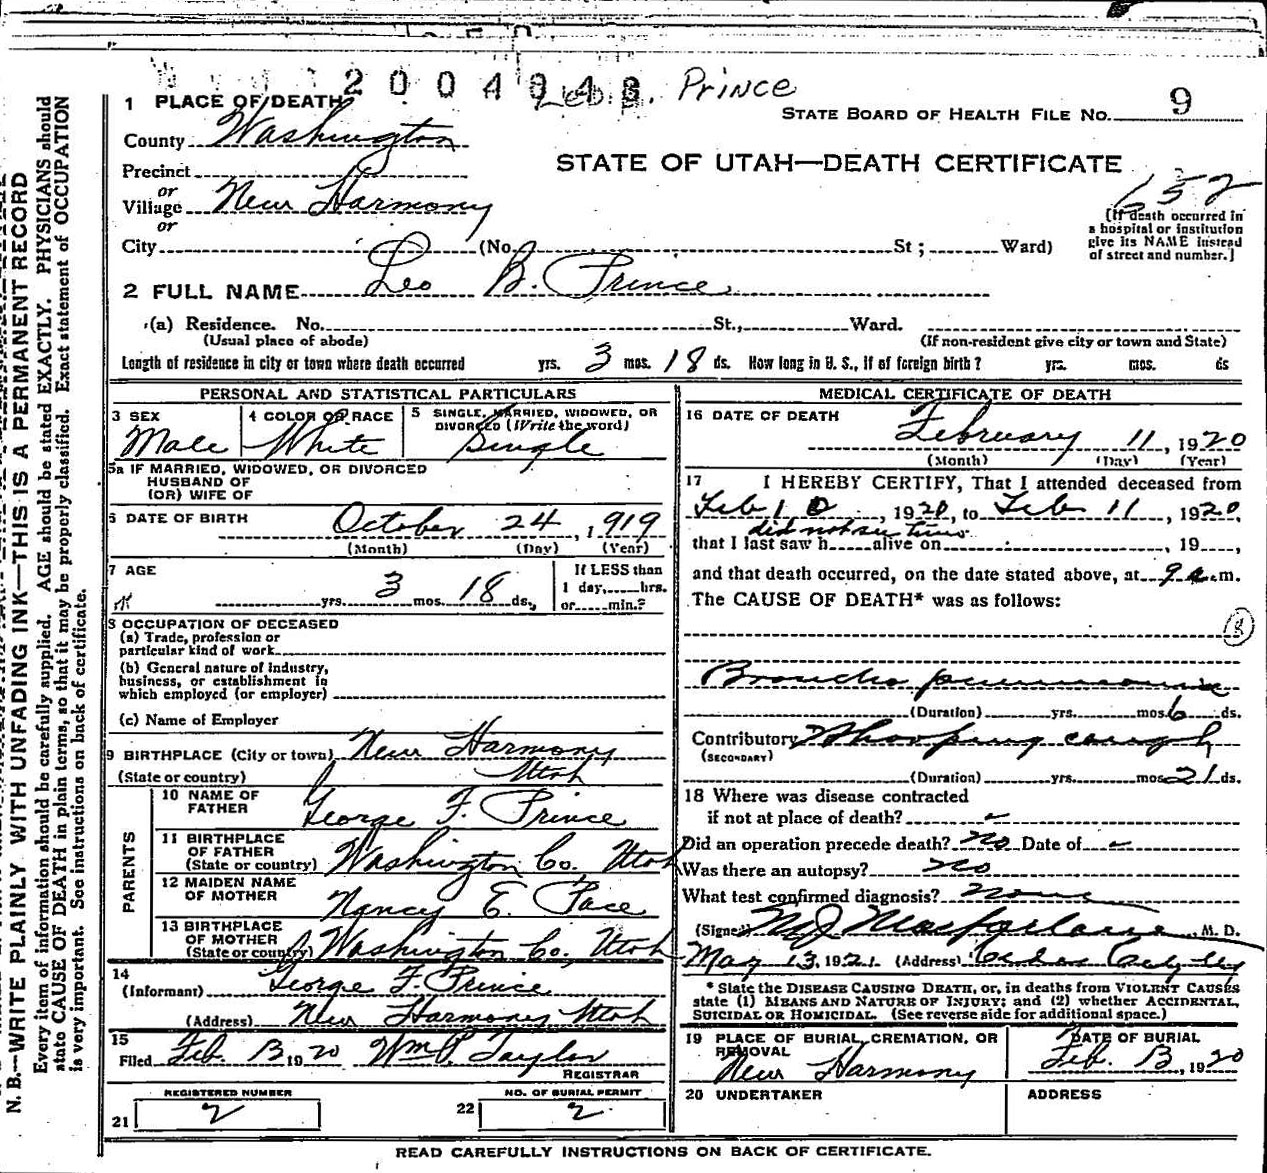 2004048 Leo B. Prince
STATE BOARD OF HEALTH FILE NO. 9
1 PLACE OF DEATH
County Washington
STATE OF UTAH—DEATH CERTIFICATE
Precinct
or
Village New Harmony
or
652
(If death occurred in
a hospital or institution
give its NAME instead
of street and number.)
City (No. St ; Ward)
2 FULL NAME Leo B. Prince
(a) Residence. No. St., Ward.
(Usual place of abode) (If non-resident give city or town and State)
Length of residence in city or town where death occurred yrs. 3 mos. 18 ds. How long in U. S., if of foreign birth ? yrs. mos. ds
PERSONAL AND STATISTICAL PARTICULARS
3 SEX
Male
4 COLOR OR RACE
White
5 SINGLE, MARRIED, WIDOWED, OR
DIVORCED (Write the word)
Single
5a IF MARRIED, WIDOWED, OR DIVORCED
HUSBAND OF
(OR) WIFE OF
6 DATE OF BIRTH October 24, 1919
(Month) (Day) (Year)
7 AGE
yrs. 3 mos. 18 ds.,
If LESS than
1 day, hrs.
or min.?
8 OCCUPATION OF DECEASED
(a) Trade, profession or
particular kind of work
(b) General nature of industry,
business, or establishment in
which employed (or employer)
(c) Name of Employer
9 BIRTHPLACE (City or town) New Harmony
(State or country) Utah
PARENTS
10 NAME OF
FATHER George F. Prince
11 BIRTHPLACE
OF FATHER
(State or country) Washington Co. Utah
12 MAIDEN NAME
OF MOTHER Nancy E. Pace
13 BIRTHPLACE
OF MOTHER
(State or country) Washington Co., Utah
14
(Informant) George F. Prince
(Address) New Harmony Utah
15
Filed Feb. 13 1920 Wm P. Taylor
REGISTRAR
REGISTERED NUMBER
21 2
NO. OF BURIAL PERMIT
22 2
MEDICAL CERTIFICATE OF DEATH
16 DATE OF DEATH
February 11, 1920
(Month) (Day) (Year)
17 I HEREBY CERTIFY, That I attended deceased from
Feb 10, 1920, to Feb 11, 1920,
did not see
that I last saw h alive on , 19 ,
and that death occurred, on the date stated above, at 9 a.m.
The CAUSE OF DEATH* was as follows:
8
Broncho pneumonia
(Duration) yrs. mos. 6 ds.
Contributory Whooping cough
(SECONDARY)
(Duration) yrs. mos. 21 ds.
18 Where was disease contracted
if not at place of death?
Did an operation precede death? no Date of
Was there an autopsy? no
What test confirmed diagnosis? none
(Signed) M J Macfarlane, M. D.
May 13, 1921. (Address) Cedar City
* State the DISEASE CAUSING DEATH, or, in deaths from VIOLENT CAUSES
state (1) MEANS AND NATURE OF INJURY; and (2) whether ACCIDENTAL,
SUICIDAL OR HOMICIDAL. (See reverse side for additional space.)
19 PLACE OF BURIAL, CREMATION, OR
REMOVAL
New Harmony
DATE OF BURIAL
Feb. 13, 1920
20 UNDERTAKER
ADDRESS
READ CAREFULLY INSTRUCTIONS ON BACK OF CERTIFICATE.
N. B.—WRITE PLAINLY WITH UNFADING INK—THIS IS A PERMANENT RECORD
Every item of information should be carefully supplied. AGE should be stated EXACTLY. PHYSICIANS should
state CAUSE OF DEATH in plain terms, so that it may be properly classified. Exact statement of OCCUPATION
is very important. See instructions on back of certificate.